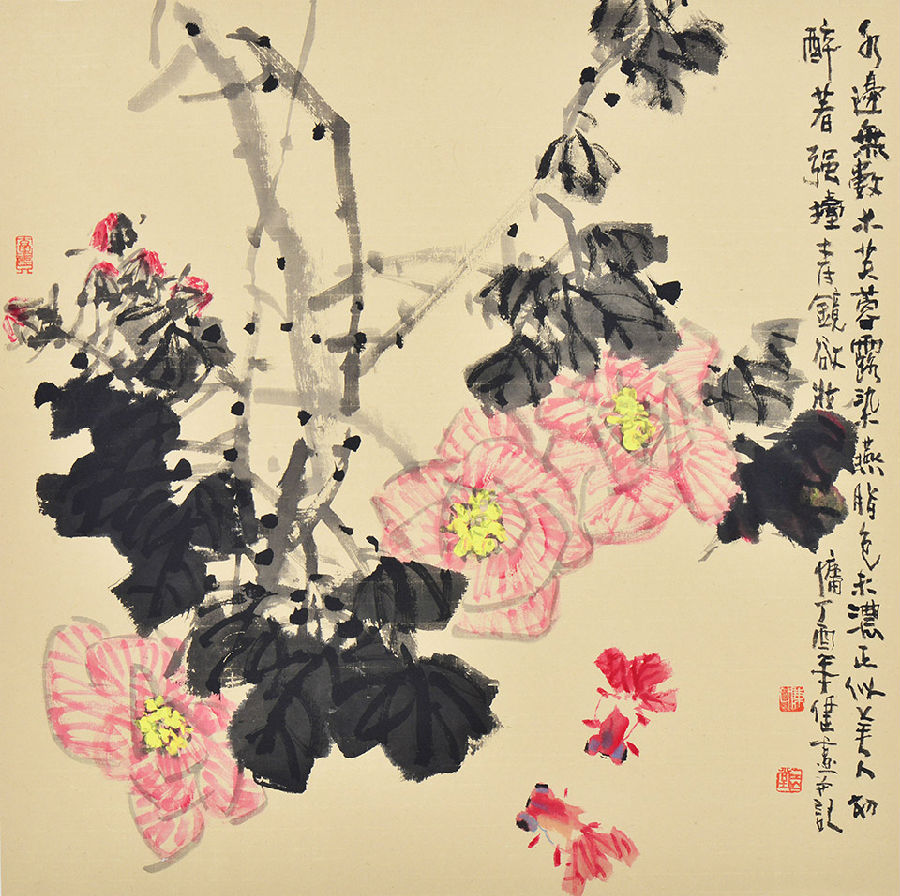 水邊無數木芙蓉露染燕脂色未濃正似美人初
醉着强擡青鏡欲妝慵丁酉年健畫并記